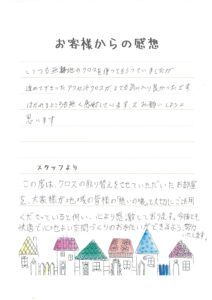 お客様からの感想
いつも無難のクロスを使ってもらっていましたが
進めて下さったアクセントクロスがとても気に入り良かったです
はがのところも広く感じています。又お願いしようと
思います
スタッフより
この度は、クロスの貼り替えをさせていただいたお部屋
を、大家様が地域の皆様の憩いの場として大切にご活用
くださっていると伺い、心より感謝しております。今後とも
快適で心地よい空間づくりのお手伝いができるよう、努力
いたします。